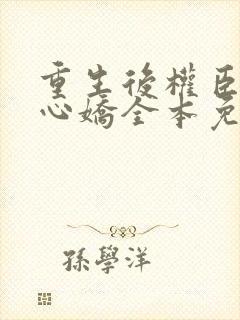 重生後權臣
心嬌全本免
孫學洋